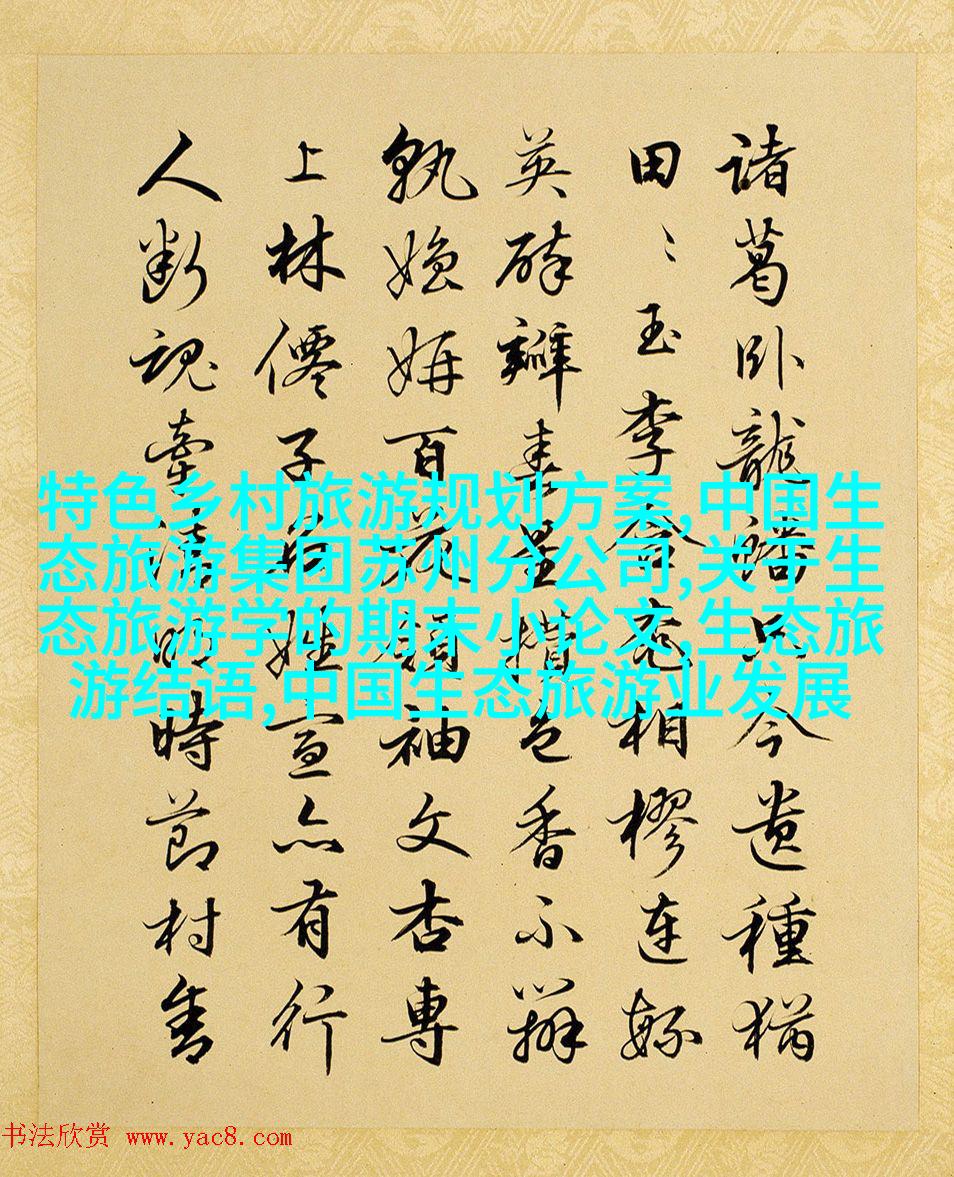 特色乡村旅游规划方案,中国生
态旅游集团苏州分公司,关于生
态旅游学的期末小论文,生态旅
游结语,中国生态旅游业发展
諸葛卧龍蟠只今遺種猶
田〻玉李相樛連
英碎瓣色香不
孰妍百花領袖文杏專
上林僊子姓宣亦有行
人斷魂牽清明時節村售
书法欣赏 www.yac8.com